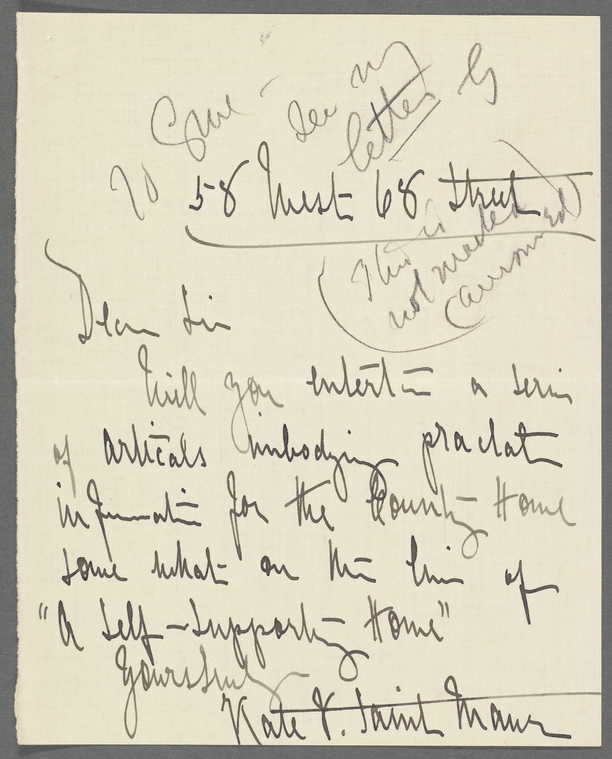 see my
letter
58 West 68 Street
(This is
not made
Dear Sir
Will you entertain a series
of articals imbodying
information for the Country Home
some what on the line of
"A Self-Supporting Home"
Yours truly
Kate V. Saint Maur